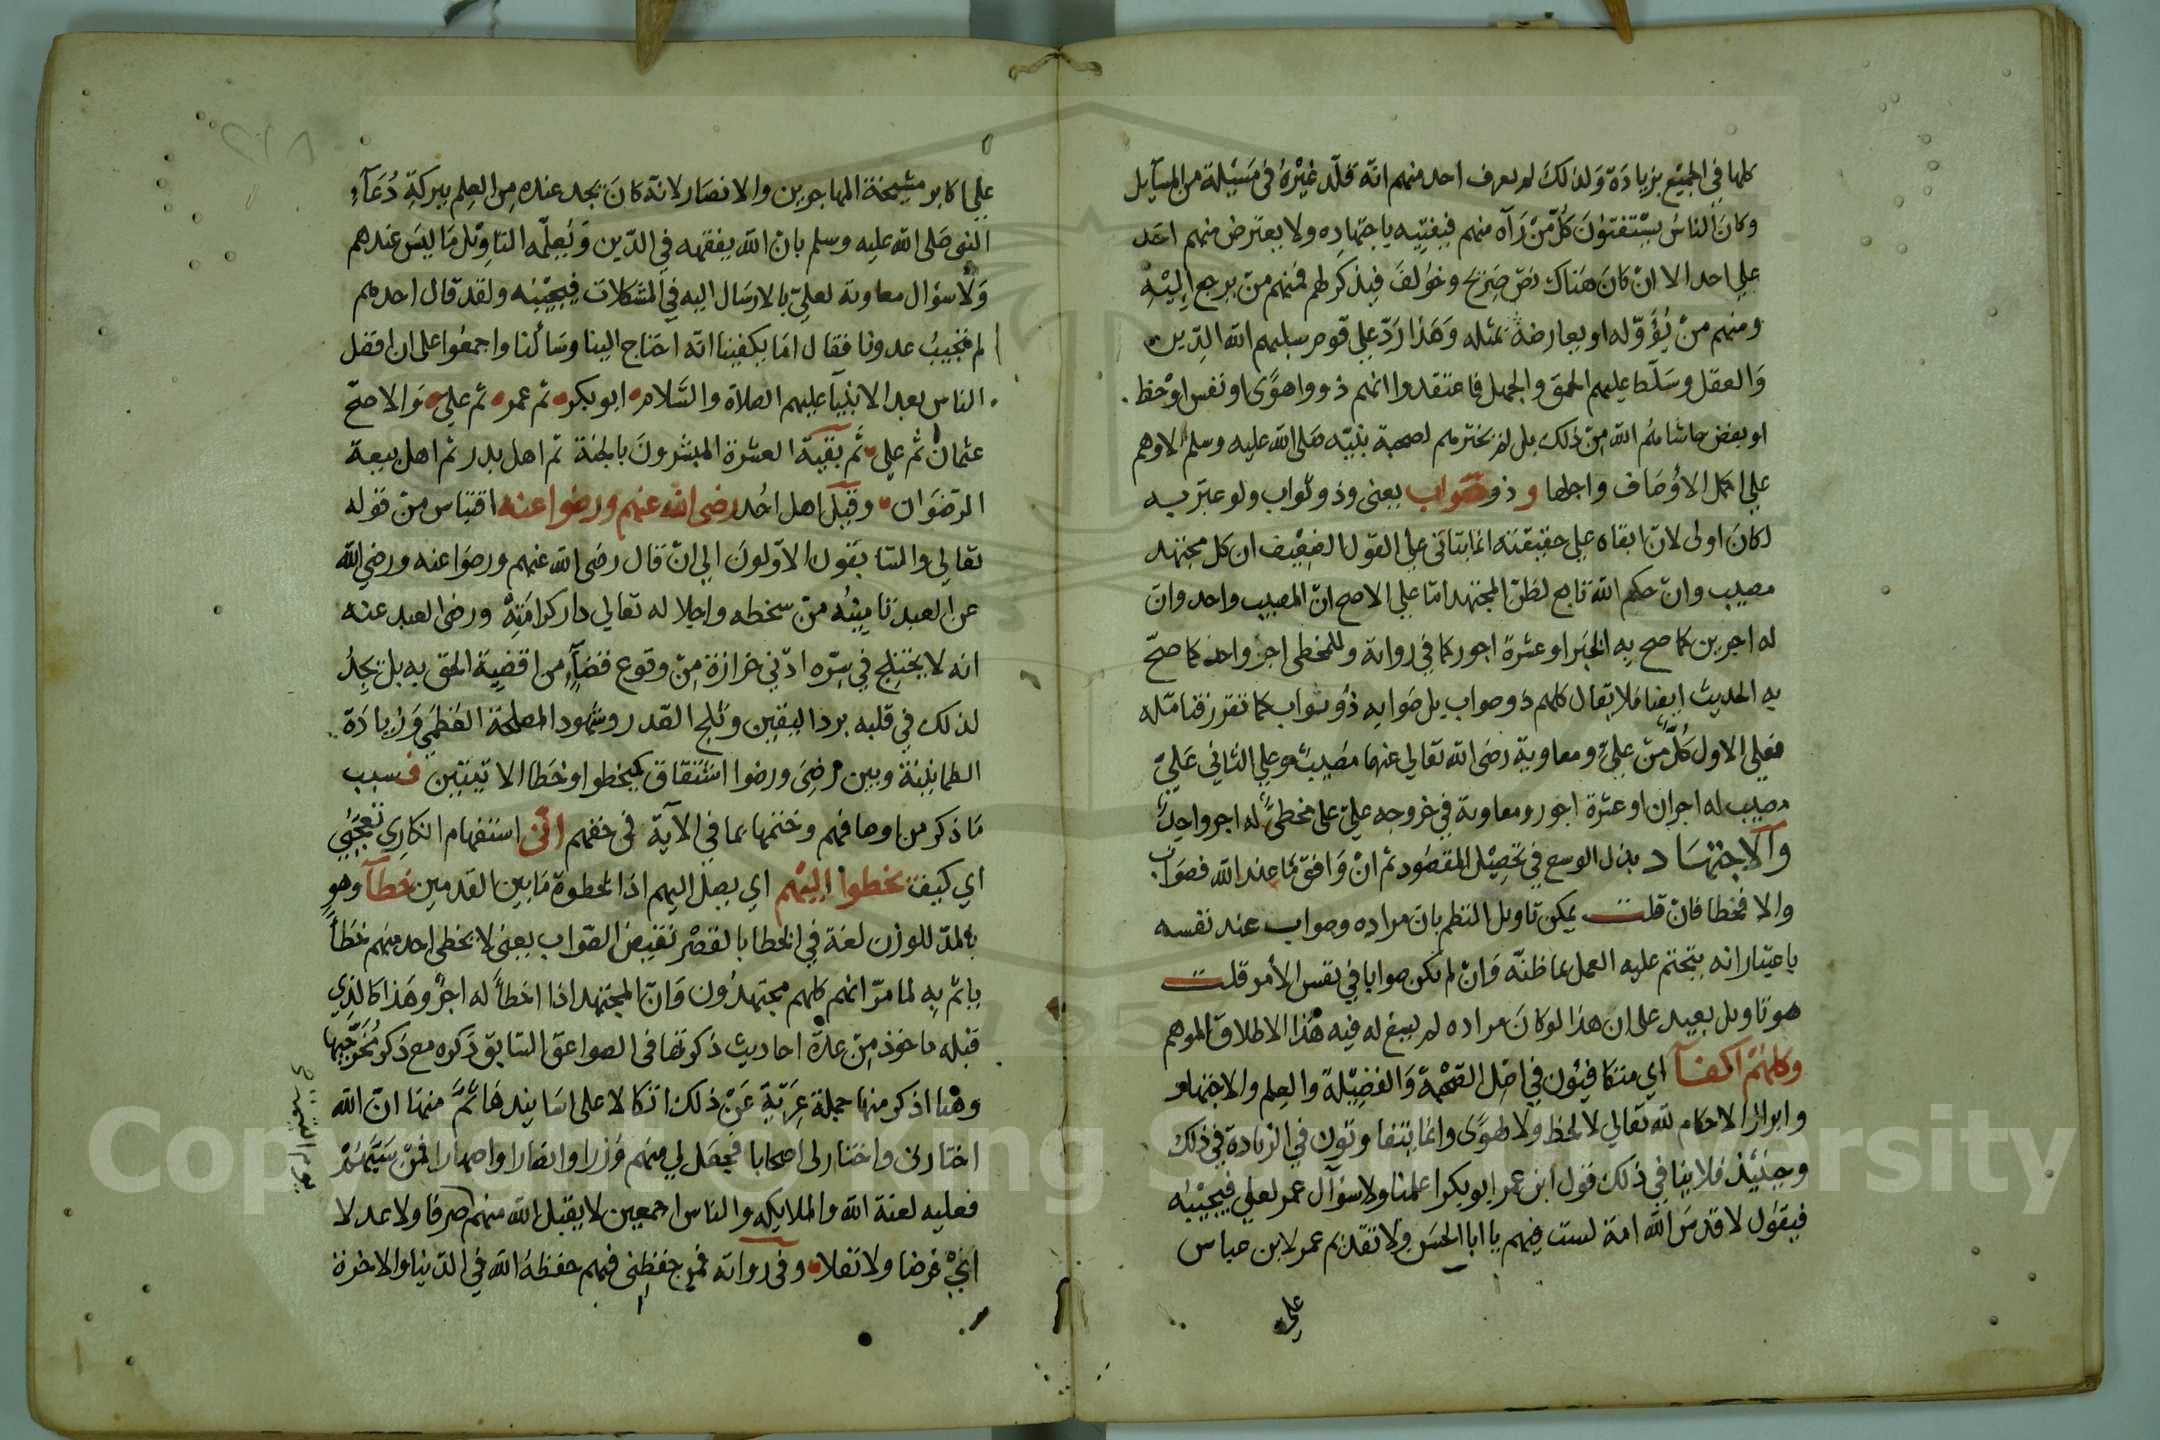 كلها في الجميع بزيادة ولذلك لم يعرف احد منهم انه قلد غيره في مسيلة من المسآيل
وكان الناس يستفتون كل من رآه منهم فيفتيه باجتهاده ولا يعترض منهم احد
علي احد الا ان كان هناك نص صريح وخولف فيذكر لهم فمنهم من يرجع اليه
ومنهم من يؤوله او يعارضه بمثله وهذا رد علي قوم سلبهم الله الدين
والعقل وسلط عليهم الحمق والجهل فاعتقدوا انهم ذووا هوًى او نفس او حظ
او بغض حاشاهم الله من ذلك بل لم يخترهم لصحبة نبيه صلى الله عليه وسلم الا وهم
علي اكمل الاوصاف واجلها وذو صواب يعني وذو ثواب ولو عبر به
لكان اولى لان ابقاه علي حقيقته انما يتاتي علي القول الضعيف ان كل مجتهد
مصيب وان حكم الله تابع لظن المجتهد اما علي الاصح ان المصيب واحد وان
له اجرين كما صح به الخبر او عشرة اجور كما في رواية وللمخطي اجر واحد كما صح
به الحديث ايضا فلا يقال كلهم ذو صواب بل صوابه ذو ثواب كما تقرر فتامله
فعلي الاول كل من علي ومعاوية رضي الله تعالي عنهما مصيب وعلي الثاني علي
مصيب له اجران او عشرة اجور ومعاوية في خروجه علي علي مخطئ له اجر واحد
والاجتهاد بذل الوسع في تحصيل المقصود ثم ان وافق ما عند الله فصواب
والا فخطا فان قلت يمكن تاويل النظم بان مراده وصواب عند نفسه
باعتبار انه يتحتم عليه العمل بما ظنه وان لم يكن صوابا في نفس الأمر قلت
هو تاويل بعيد على ان هذا لو كان مراده لم يسغ له فيه هذا الاطلاق الموهم
وكلهم اكفآ اي متكافيون في اصل الصحبة والفضيلة والعلم والاجتهاد
وابراز الاحكام لله تعالي لا لحظ ولا لهوًى وانما يتفاوتون في الزيادة في ذلك
وحينيذ فلا ينافي ذلك قول ابن عمر ابو بكر اعلمنا ولا سؤآل عمر لعلي فيجيبه
فيقول لا قدس الله امة لست فيهم يا ابا الحسن ولا تقديم عمر لابن عباس
علي
علي اكابر مشيخة المهاجرين والانصار لانه كان يجد عنده من العلم ببركة دعآء
النبي صلى الله عليه وسلم بان الله يفقهه في الدين ويعلمه التاويل ما ليس عندهم
ولا سؤال معاوية لعلي بالارسال اليه في المشكلات فيجيبه ولقد قال احدهم
لم تجيب عدونا فقال اما يكفينا انه احتاج الينا وسألنا واجمعوا على ان افضل
الناس بعد الانبيا عليهم الصلاة والسلام ابو بكر ثم عمر ثم علي والاصح
عثمان ثم علي ثم بقية العشرة المبشرون بالجنة ثم اهل بدر ثم اهل بيعة
الرضوان وقيل اهل احد رضي الله عنهم ورضوا عنه اقتباس من قوله
تعالي والسابقون الاولون الي ان قال رضي الله عنهم ورضوا عنه ورضي الله
عن العبد تامينه من سخطه واحلاله تعالي دار كرامته ورضي العبد عنه
انه لا يختلج في سره ادني حزازة من وقوع قضآء من اقضية الحق به بل يجد
لذلك في قلبه برد اليقين وثلج الصدر وشهود المصلحة العظمي وزيادة
الطمانينة وبين رضي ورضوا اشتقاق كيخطوا وخطا الاتيتين فسبب
ما ذكر من اوصافهم وختمها بما في الآية في حقهم انى استفهام انكاري تعجبي
اي كيف يخطوا اليهم اي يصل اليهم اذ الخطوة ما بين القدمين خطآ وهو
بالمد للوزن لغة في الخطا بالقصر نقيض الصواب يعني لا يخطي احد منهم خطأ
ياثم به لما مر انهم كلهم مجتهدون وان المجتهد اذا اخطأ له اجر وهذا كالذي
قبله ماخوذ من عدة احاديث ذكرتها في الصواعق السابق ذكره مع ذكر مخرجيها
وهنا اذكر منها جملة عرية عن ذلك اتكالا على اسانيدها ثم منها ان الله
اختارني واختار لي اصحابا فجعل لي منهم وزرا وانصارا واصهارا فمن سبهم
فعليه لعنة الله والملايكه والناس اجمعين لا يقبل الله منهم صرفا ولا عدلا
اي فرضا ولا نفلا وفي رواية فمن حفظني فيهم حفظه الله في الدنيا والاخرة
Copyright © King Saud University